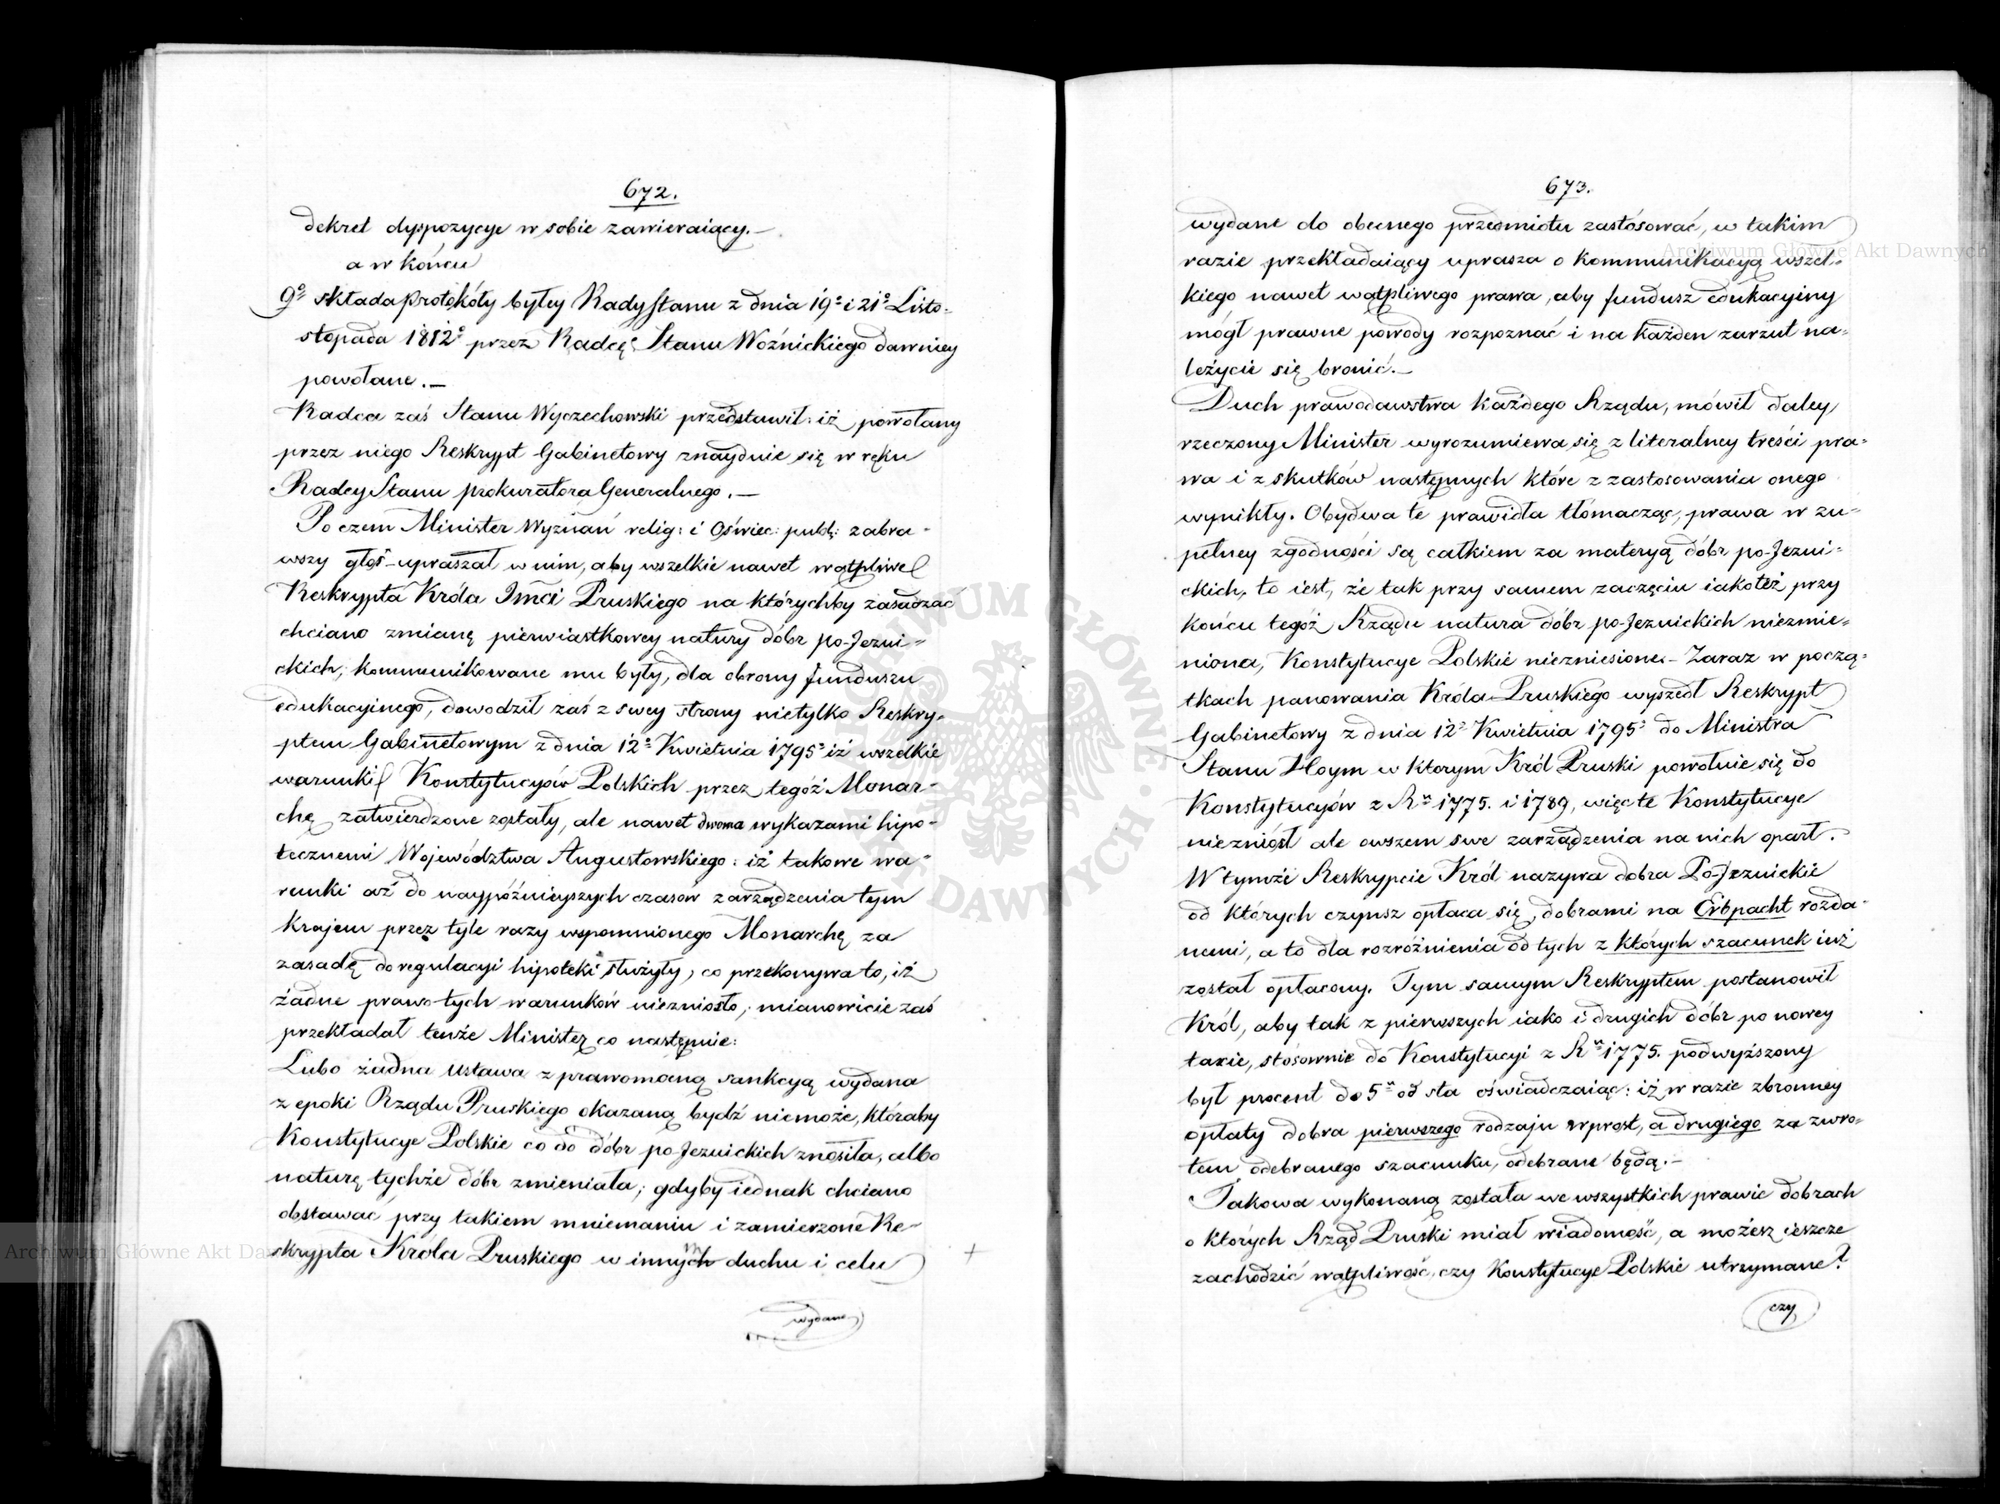 672.
dekret dyspozycye w sobie zawieraiący.—
a w końcu
9o składa protokóły byłey Rady Stanu z dnia 19o i 21o Listo-
stopada 1812o przez Radcę Stanu Woźnickiego dawniey
powołane.—
Radca zaś Stanu Wyczechowski przedstawił: iż powołany
przez niego Reskrypt Gabinetowy znayduie się w ręku
Radcy Stanu prokuratora Generalnego.—
Poczem Minister Wyznań relig: i Oświec: publ: zabra-
wszy głos upraszał w nim, aby wszelkie nawet wątpliwe
Reskrypta Króla Jmci Pruskiego na którychby zasadzać
chciano zmianę pierwiastkowey natury dóbr po-Jezui-
ckich, kommunikowane mu były, dla obrony funduszu
edukacyinego, dowodził zaś z swey strony nietylko Reskry-
ptem Gabinetowym z dnia 12o Kwietnia 1795o iż wszelkie
warunki Konstytucyów Polskich przez tegoż Monar-
chę zatwierdzone zostały, ale nawet dwoma wykazami hipo-
tecznemi Województwa Augustowskiego: iż takowe wa-
runki aż do naypóźnieyszych czasów zarządzenia tym
Krajem przez tyle razy wspomnionego Monarchę za
zasadę do regulacyi hipoteki służyły, co przekonywa to, iż
żadne prawo tych warunków niezniosło, mianowicie zaś
przekładał tenże Minister co następuie:
Lubo żadna Ustawa z prawomocną sankcyą wydana
z epoki Rządu Pruskiego okazaną bydź niemoże, któraby
Konstytucye Polskie co do dóbr po Jezuickich znosiła, albo
naturę tychże dóbr zmieniała; gdyby iednak chciano
obstawać przy takiem mniemaniu i zamierzone Re-
skrypta Króla Pruskiego w innym duchu i celu +
wydane
673.
wydane do obecnego przedmiotu zastósować, w takim
razie przekładaiący uprasza o kommunikacyą wszel-
kiego nawet wątpliwego prawa, aby fundusz edukacyiny
mógł prawne powody rozpoznać i na każden zarzut na-
leżycie się bronić.—
Duch prawodawstwa każdego Rządu, mówił daley
rzeczony Minister wyrozumiewa się z literalney treści pra-
wa i z skutków następnych które z zastosowania onego
wynikły. Obydwa te prawidła tłómacząc, prawa w zu-
pełney zgodności są całkiem za materyą dóbr po-Jezui-
ckich, to iest, że tak przy samem zaczęciu iakoteż przy
końcu tegoż Rządu natura dóbr po-Jezuickich niezmie-
niona, Konstytucye Polskie niezniesione.— Zaraz w począ-
tkach panowania Króla Pruskiego wyszedł Reskrypt
Gabinetowy z dnia 12o Kwietnia 1795o do Ministra
Stanu Hoym w ktorym Król Pruski powołuie się do
Konstytucyów z Ru 1775. i 1789, więc te Konstytucye
niezniósł ale owszem swe zarządzenia na nich oparł.
W tymże Reskrypcie Król nazywa dobra Po-Jezuickie
od których czynsz opłaca się, dobrami na Erbpacht rozda-
nemi, a to dla rozróżnienia od tych z których szacunek iuż
został opłacony. Tym samym Reskryptem postanowił
Król, aby tak z pierwszych iako i drugich dóbr po nowey
taxie, stósownie do Konstytucyi z Ru 1775. podwyższony
był procent do 5u od sta oświadczaiąc: iż w razie zbronney
opłaty dobra pierwszego rodzaju wprost, a drugiego za zwro-
tem odebranego szacunku, odebrane będą.—
Takowa wykonaną została we wszystkich prawie dobrach
o których Rząd Pruski miał wiadomość, a możesz ieszcze
zachodzić wątpliwość, czy Konstytucye Polskie utrzymane?
czy
Archiwum Główne Akt Dawnych
ARCHIWUM GŁÓWNE AKT DAWNYCH